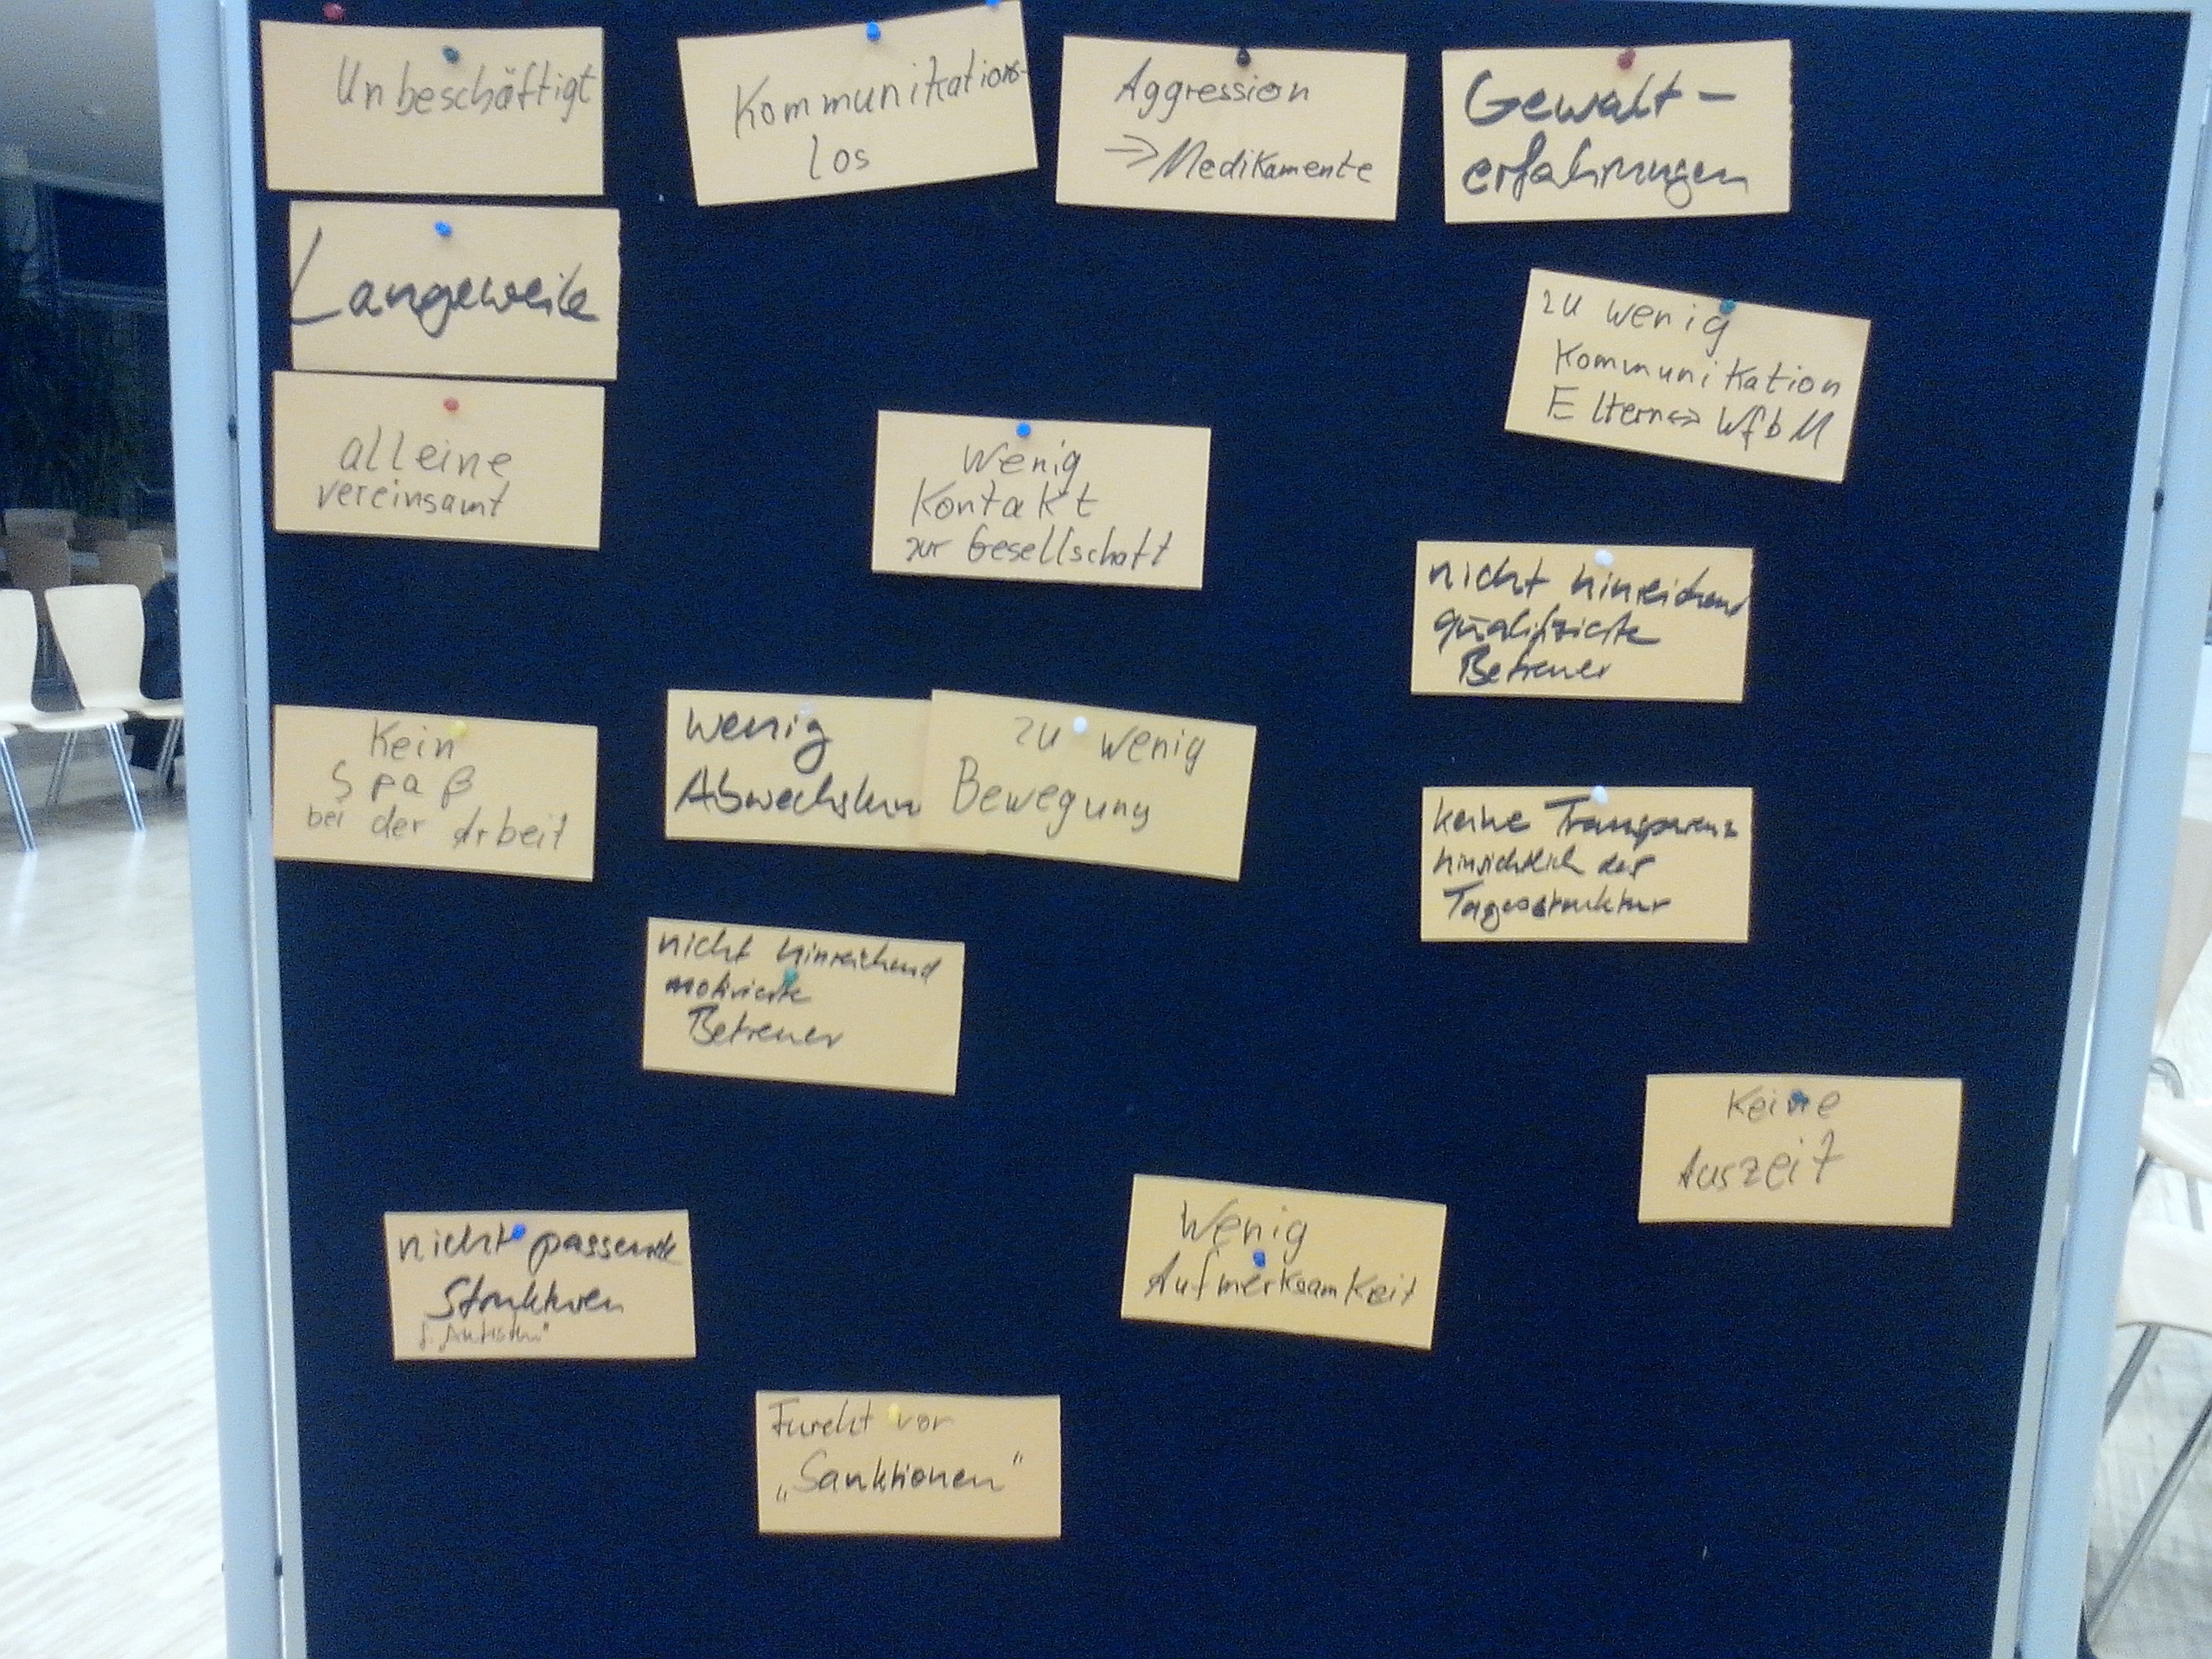 Unbeschäftigt
Kommunikations-
los
Aggression
=> Medikamente
Gewalt-
erfahrungen
Langeweile
zu wenig
Kommunikation
Eltern<=> WfbM
alleine
vereinsamt
Wenig
Kontakt
zur Gesellschaft
nicht hinreichend
qualifizierte
Betreuer
Kein
Spaß
bei der Arbeit
wenig
Abwechslun
zu wenig
Bewegung
keine Transparenz
hinsichtlich der
Tagesstruktur
nicht hinreichend
motivierte
Betreuer
Keine
Auszeit
nicht passende
Strukturen
f. „Autisten"
Wenig
Aufmerksamkeit
Furcht vor
„Sanktionen"